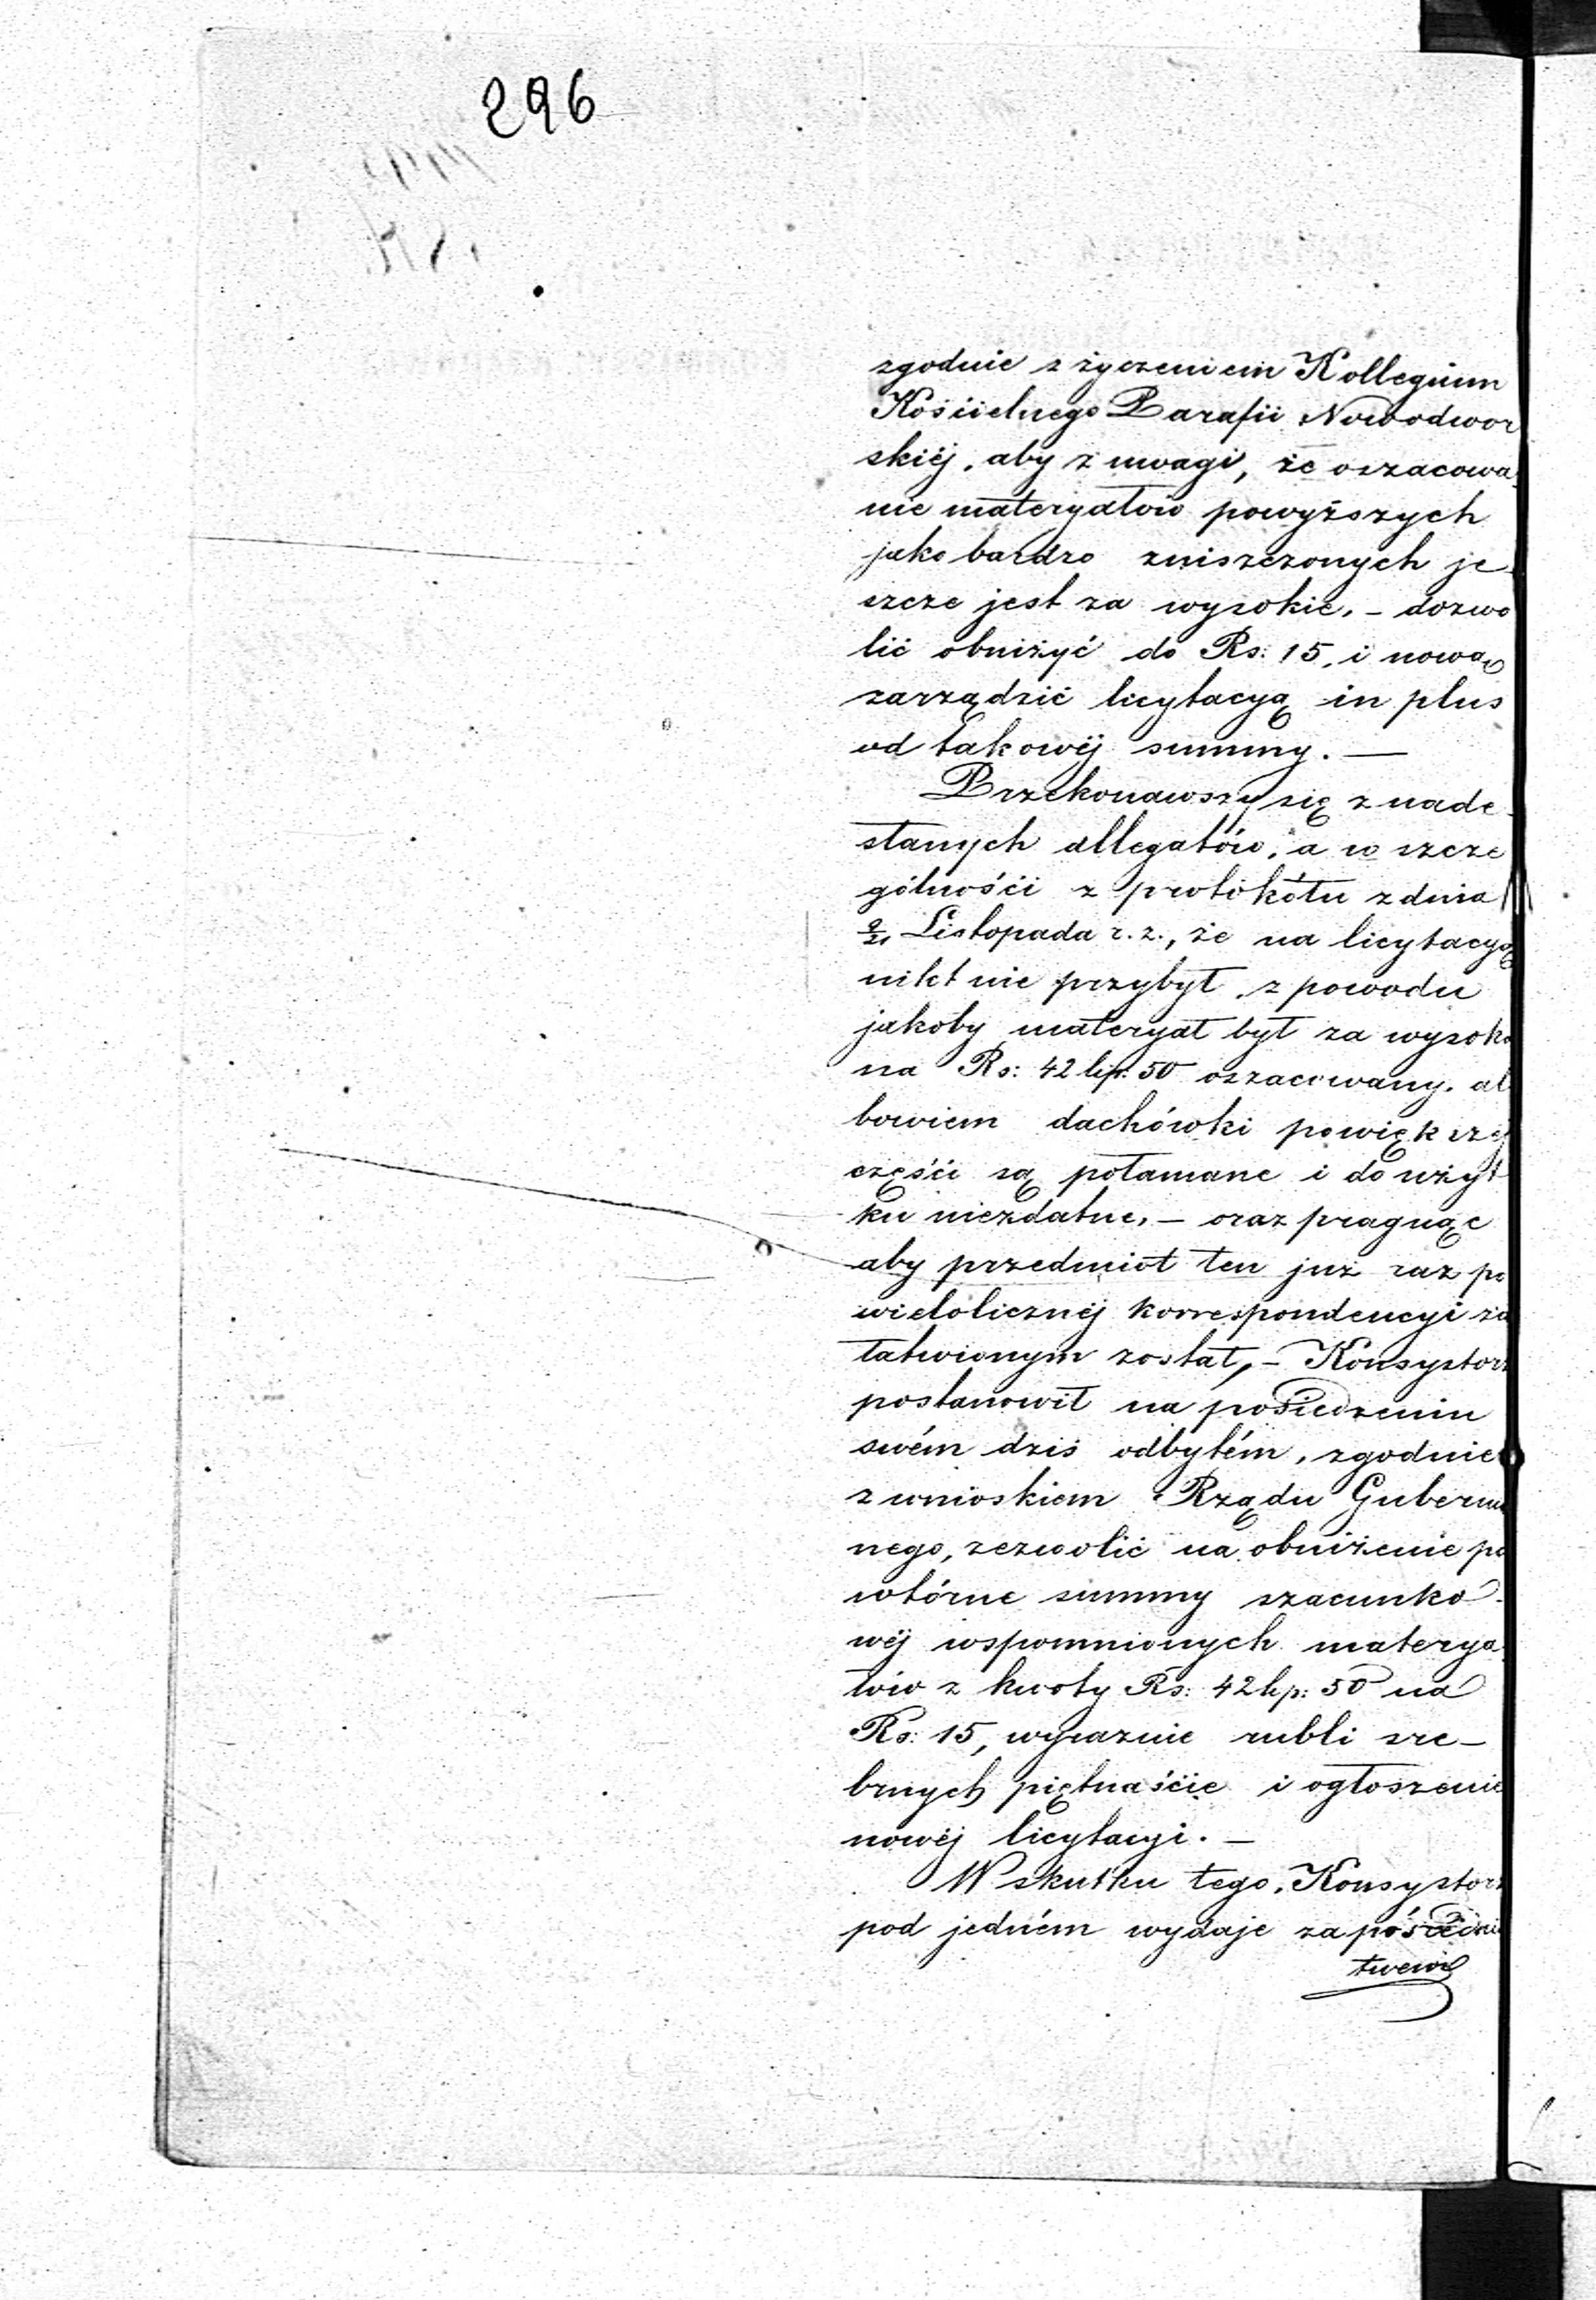 296
zgodnie z życzeniem Kollegium
Kościelnego Parafii Nowodwor
skiéj, aby z uwagi, że oszacowa
nie materyałów powyższych
jako bardzo zniszczonych je
szcze jest za wysokie, – dozwo
lić obniżyć do Rs: 15, i nową
zarządzić licytacyą in plus
od takowéj summy. —
Przekonawszy się z nade
słanych allegatów, a w szcze
gólności z protokółu z dnia
9/21 Listopada r. z., że na licytacyą
nikt nie przybył, z powodu
jakoby materyał był za wysoko
na Rs: 42 kp: 50 oszacowany, al
bowiem dachówki powiększéj
części są połamane i do użyt
ku niezdatne, – oraz pragnąc
aby przedmiot ten już raz po
wielolicznéj korrespondencyi za
łatwionym został, – Konsystorz
postanowił na posiedzeniu
swém dziś odbytém, zgodnie
z wnioskiem Rządu Gubernial
nego, zezwolić na obniżenie po
wtórne summy szacunko
wéj wspomnionych materya
łów z kwoty Rs: 42 kp: 50 na
Rs: 15, wyraznie rubli sre–
brnych piętnaście i ogłoszenie
nowéj licytacyi. –
W skutku tego, Konsystorz
pod jedném wydaje za pośrednic
twem